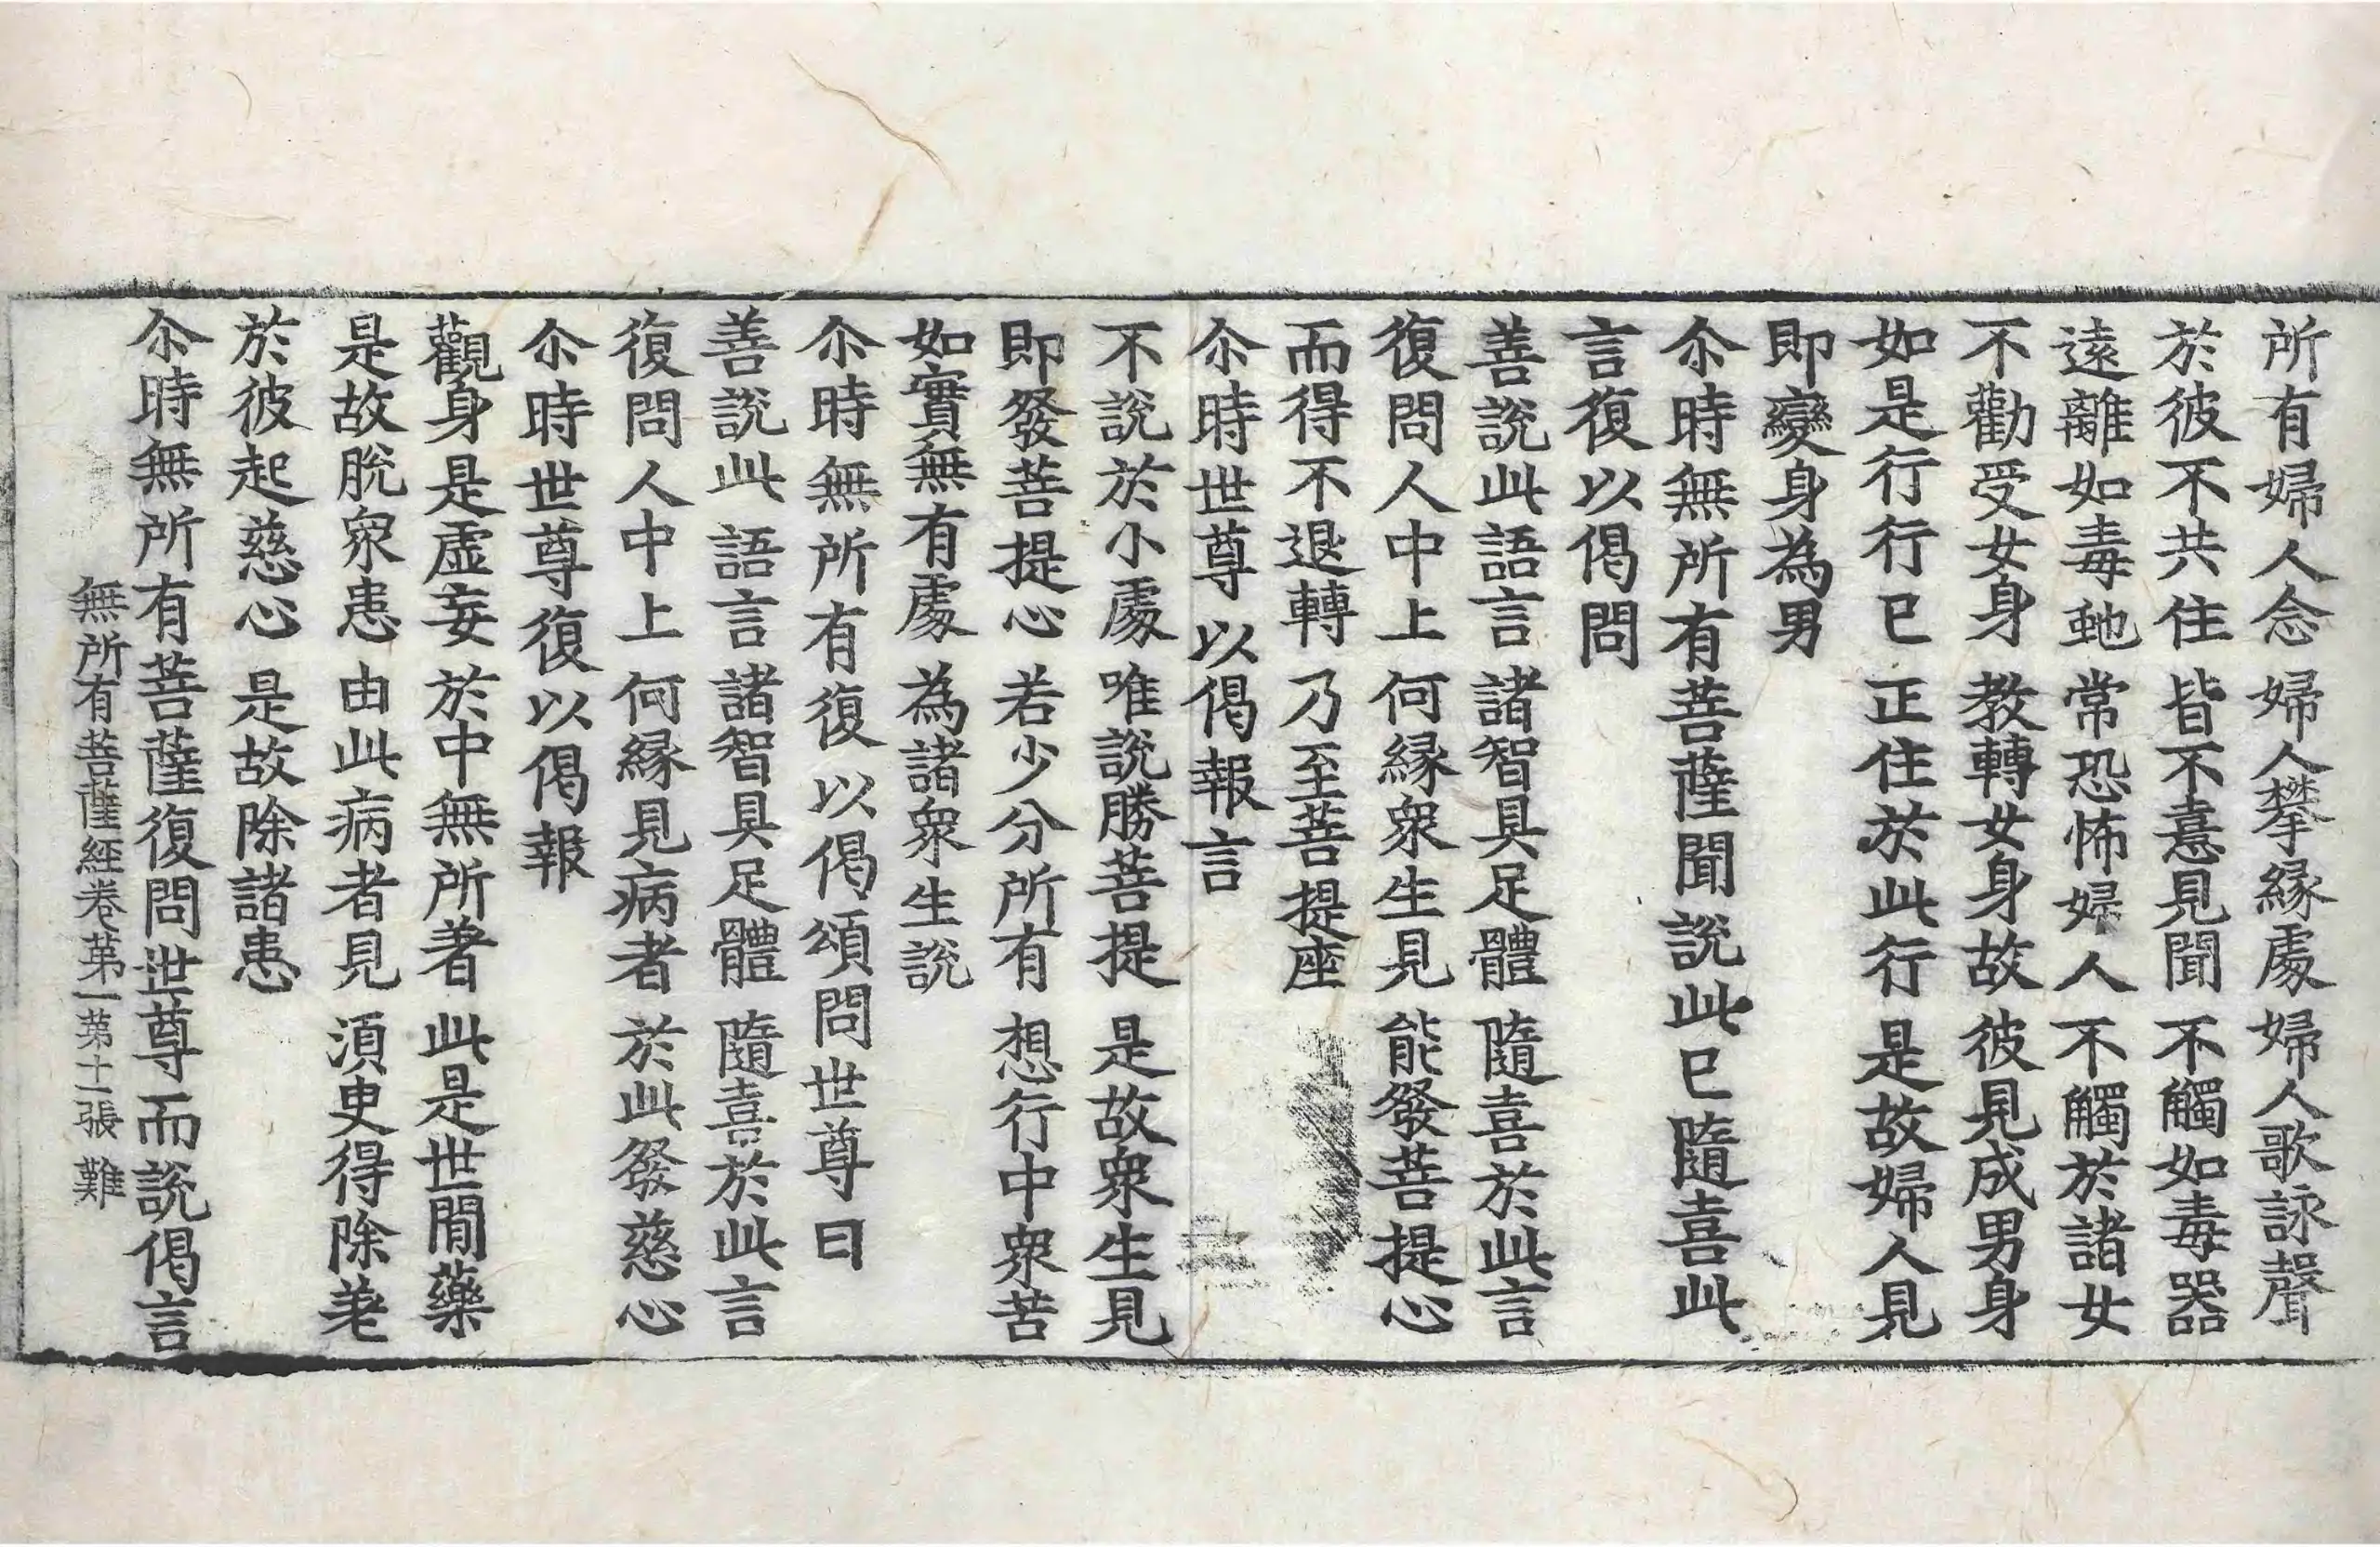 所有婦人念 婦人攀縁處 婦人歌詠聲
於彼不共住 皆不憙見聞 不觸如毒器
遠離如毒虵 常恐怖婦人 不觸於諸女
不勸受女身 教轉女身故 彼見成男身
如是行行已 正住於此行 是故婦人見
即變身為男
尒時無所有菩薩聞說此已隨喜此
言復以偈問
善說此語言 諸智具足體 隨喜於此言
復問人中上 何縁衆生見 能發菩提心
而得不退轉 乃至菩提座
尒時世尊以偈報言
不說於小處 唯說勝菩提 是故衆生見
即發菩提心 若少分所有 想行中衆苦
如實無有處 為諸衆生說
尒時無所有復以偈頌問世尊曰
善說此語言 諸智具足體 隨喜於此言
復問人中上 何縁見病者 於此發慈心
尒時世尊復以偈報
觀身是虛妄 於中無所著 此是世間藥
是故脫衆患 由此病者見 須臾得除差
於彼起慈心 是故除諸患
尒時無所有菩薩復問世尊而說偈言
無所有菩薩經卷第一 第十一張 難